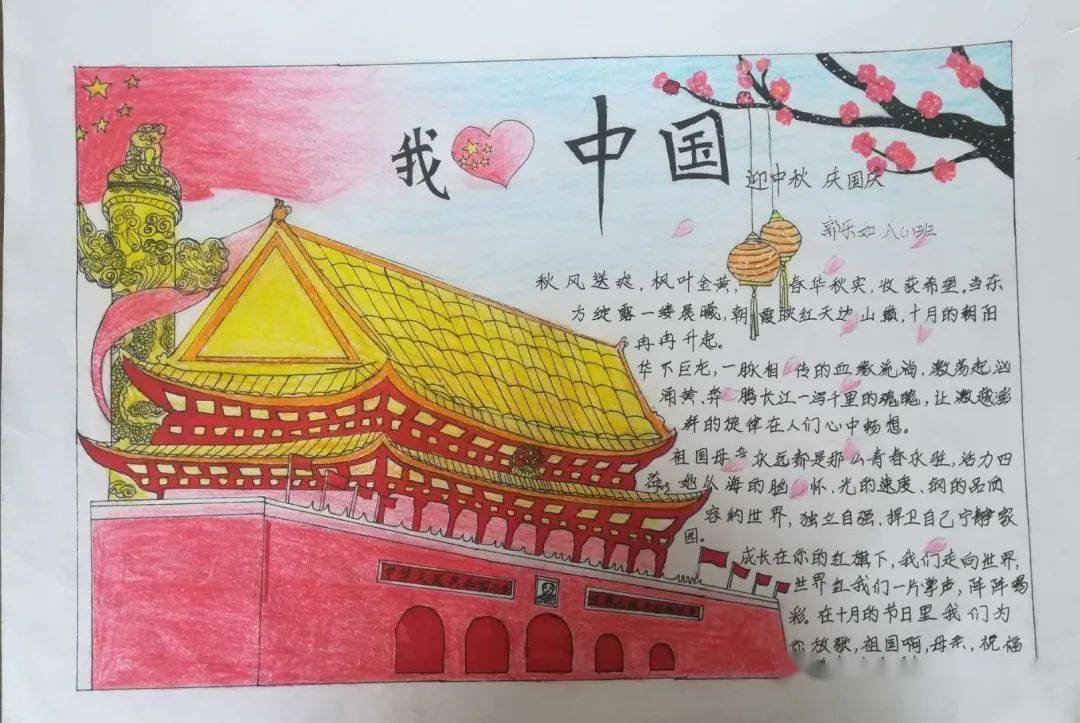 我 中国
迎中秋 庆国庆
郭乐如 八(1)班
秋风送爽，枫叶金黄， 春华秋实，收获希望。当东
方绽露一缕晨曦，朝霞映红天边山巅，十月的朝阳
冉冉升起。
华下巨龙，一脉相传的血缘流淌，激荡起汹
涌黄，奔腾长江一泻千里的魂魄，让激越澎
拜的旋律在人们心中畅想。
祖国母 永远都是那么青春永驻，活力四
她从海的胸怀，光的速度、钢的品质
容纳世界，独立自强，捍卫自己宁静家
园。
成长在你的红旗下，我们走向世界，
世界红我们一片掌声，阵阵喝
彩。在十月的节日里我们为
你放歌，祖国啊，母亲，祝福
中华人民共和国